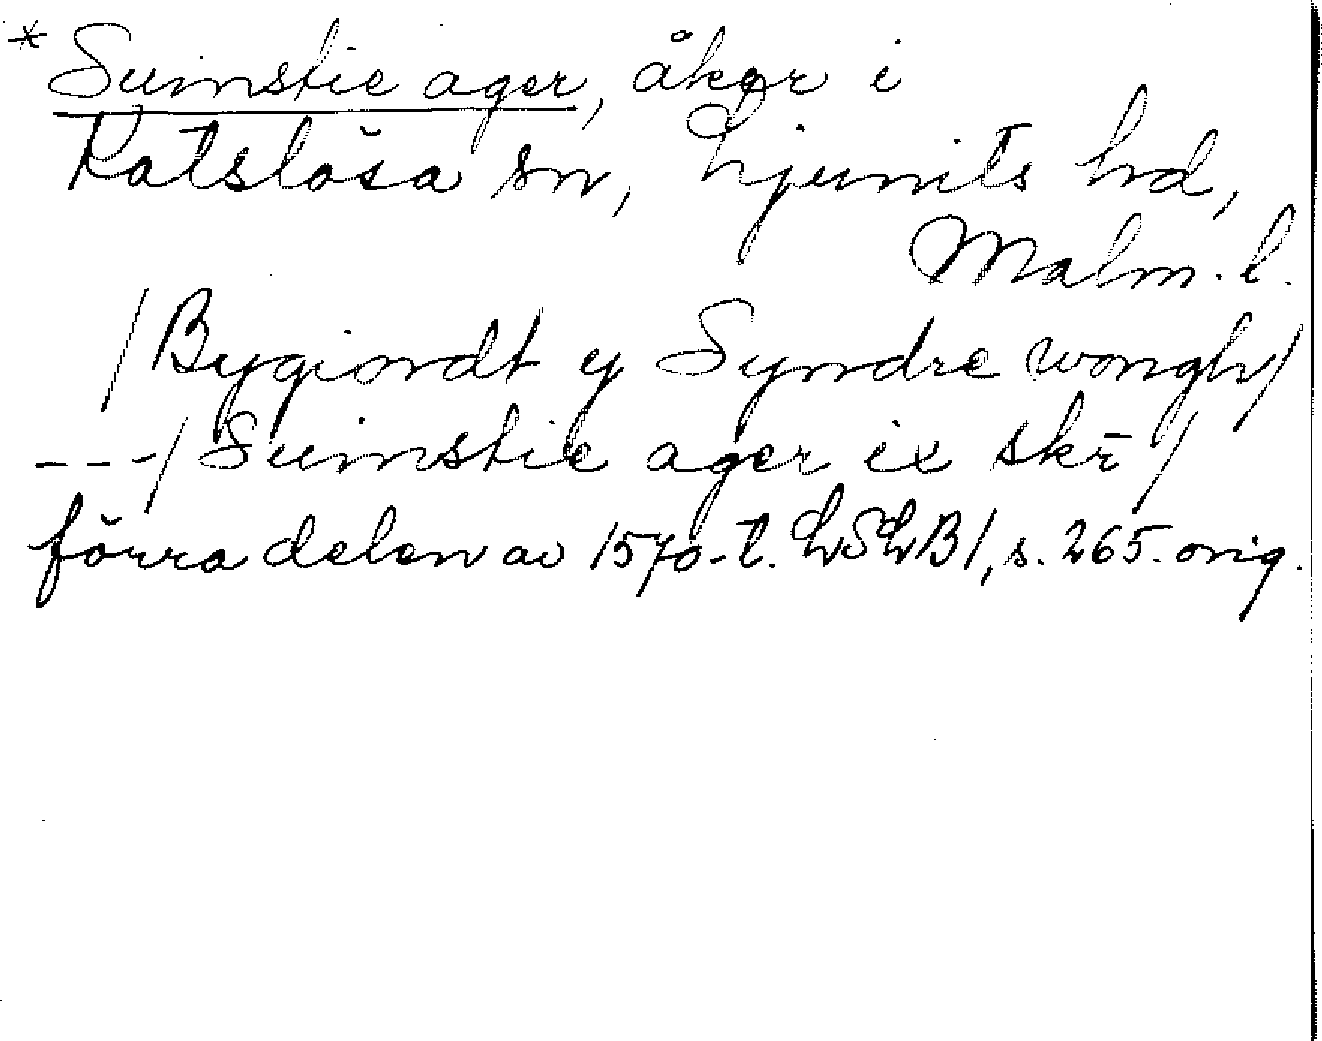 * Suinstie ager, åker i
Katslösa sn, Ljunits hd,
Malm. l.
/ Bygiordt y Syndre wongh /
--- / Suinstie ager ix skr̄ /
förra delen av 1570-t. LSLB 1, s. 265. orig.